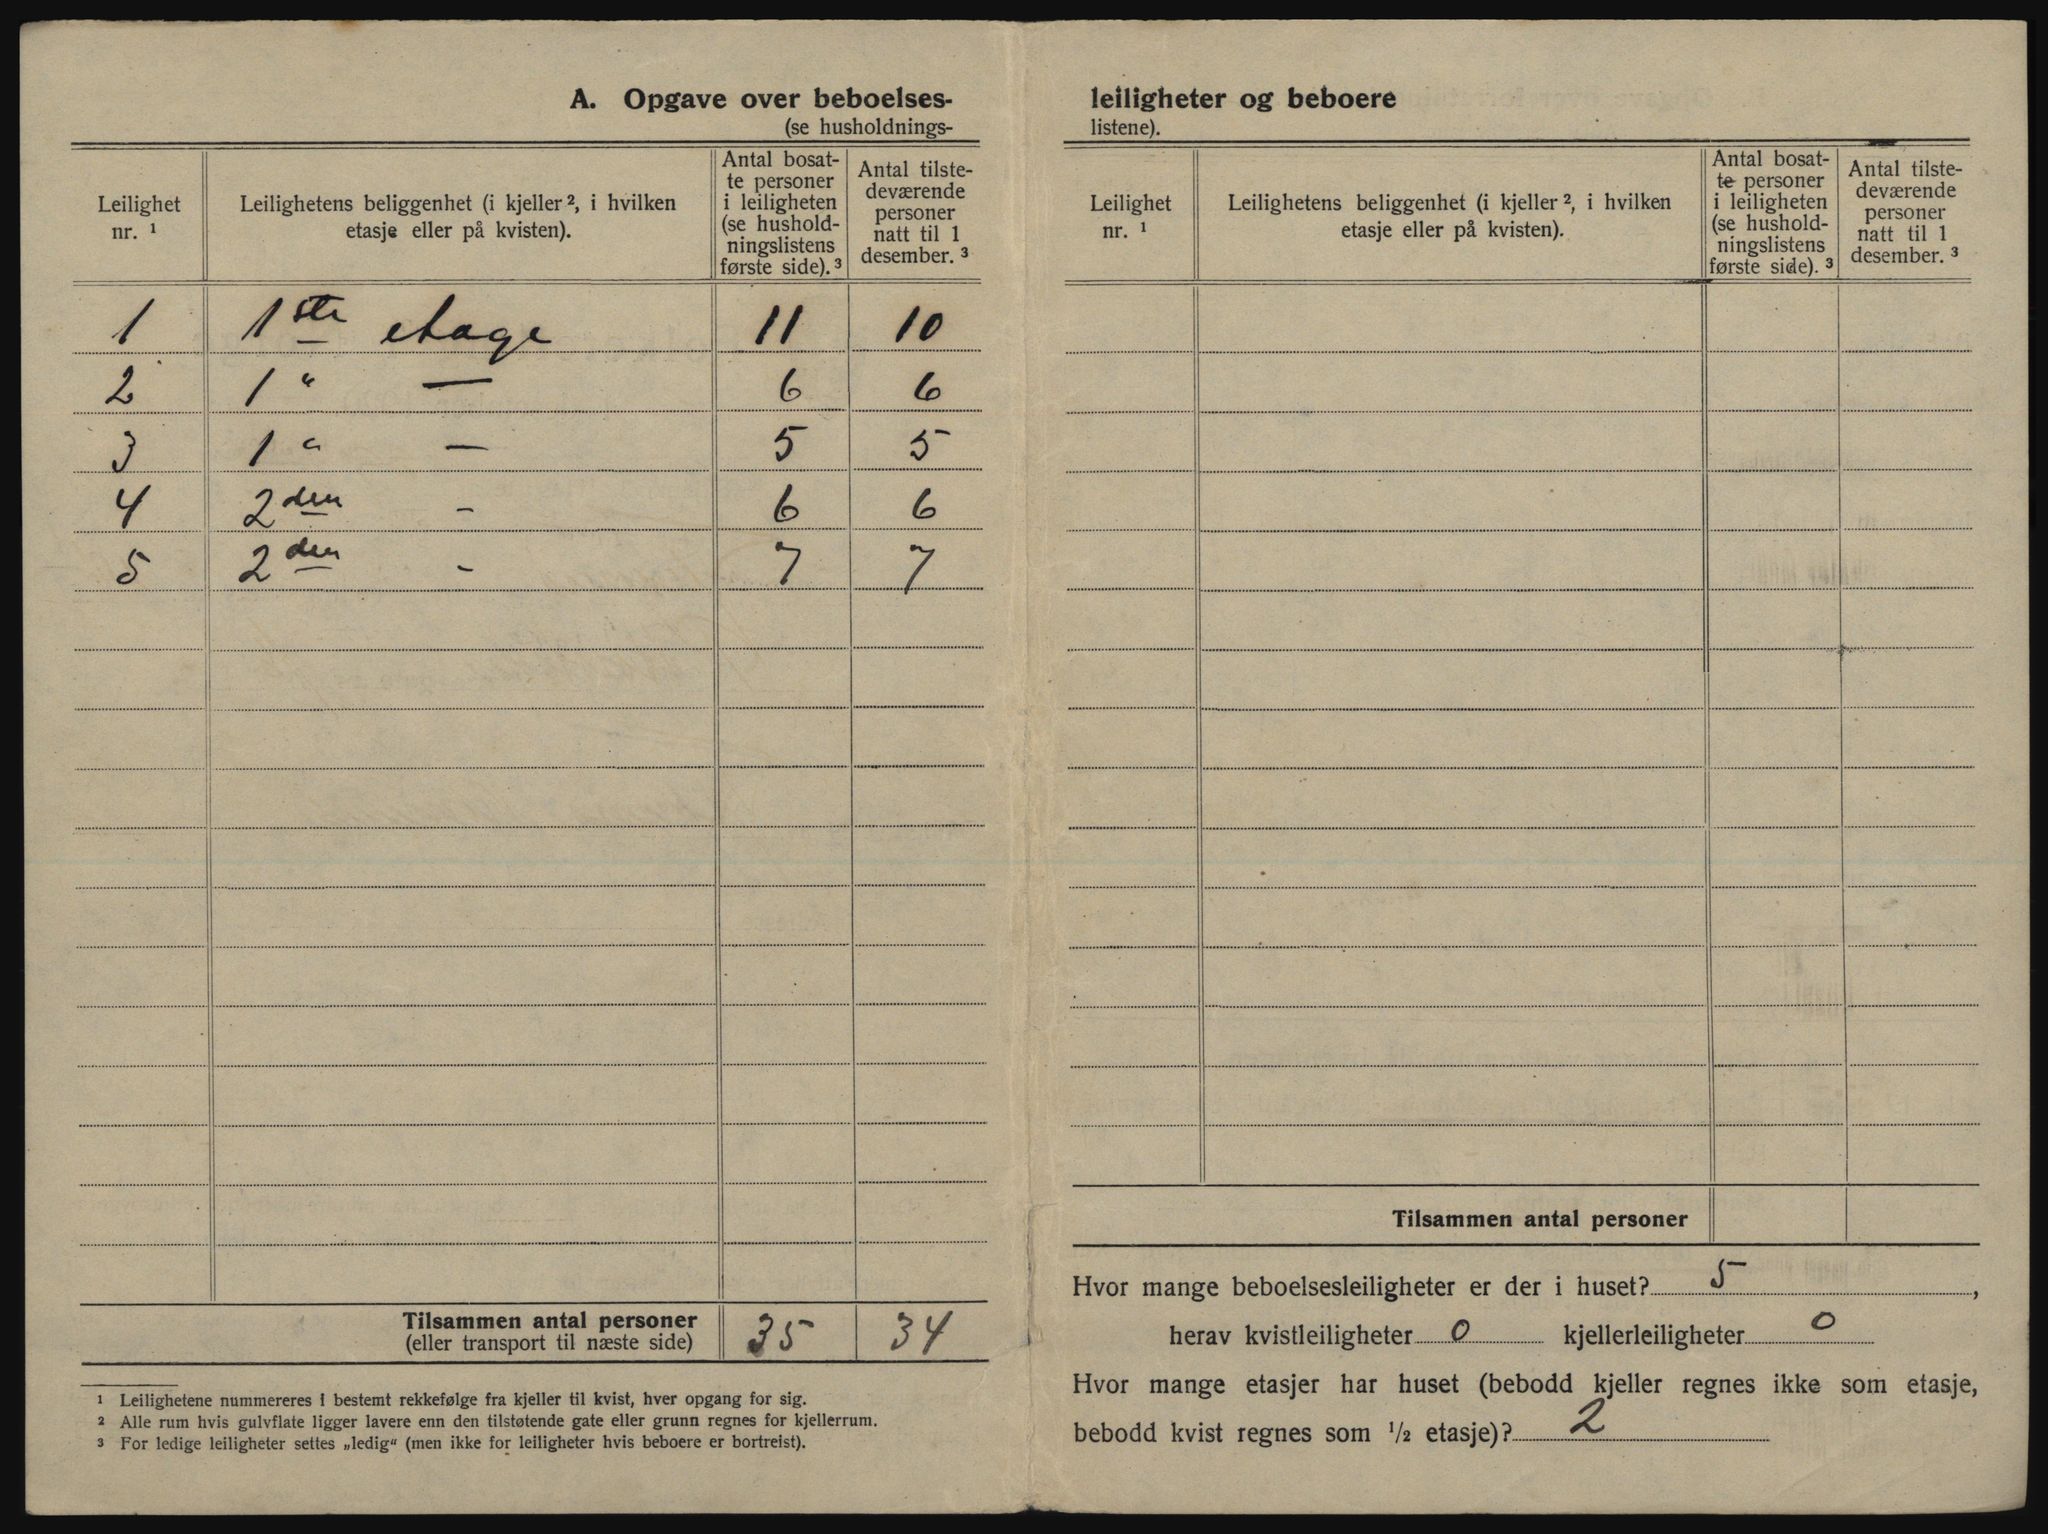 A. Opgave over beboelses-
(se husholdnings-
Leilighet nr. ¹
Leilighetens beliggenhet (i kjeller ², i hvilken etasje eller på kvisten).
Antal bosat-
te personer
i leiligheten
(se hushold-
ningslistens
første side). ³
Antal tilste-
deværende
personer
natt til 1
desember. ³
1 1ste etage 11 10
2 1 " — 6 6
3 1 " — 5 5
4 2den - 6 6
5 2den - 7 7
Tilsammen antal personer 35 34
(eller transport til næste side)
¹ Leilighetene nummereres i bestemt rekkefølge fra kjeller til kvist, hver opgang for sig.
² Alle rum hvis gulvflate ligger lavere enn den tilstøtende gate eller grunn regnes for kjellerrum.
³ For ledige leiligheter settes „ledig“ (men ikke for leiligheter hvis beboere er bortreist).
leiligheter og beboere
listene).
Leilighet nr. ¹
Leilighetens beliggenhet (i kjeller ², i hvilken etasje eller på kvisten).
Antal bosat-
te personer
i leiligheten
(se hushold-
ningslistens
første side). ³
Antal tilste-
deværende
personer
natt til 1
desember. ³
Tilsammen antal personer
Hvor mange beboelsesleiligheter er der i huset? 5,
herav kvistleiligheter 0 kjellerleiligheter 0
Hvor mange etasjer har huset (bebodd kjeller regnes ikke som etasje,
bebodd kvist regnes som ½ etasje)? 2